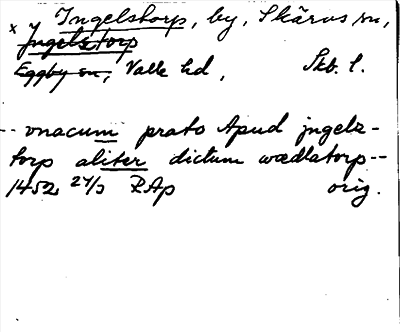 x y Ingelstorp, by, Skärvs sn,
Jngelstorp
Eggby sn, Valle hd, Skb. l.
-- vnacum prato Apud jngelz-
torp aliter dictum wædlatorp --
1452 24/3 RAp orig.